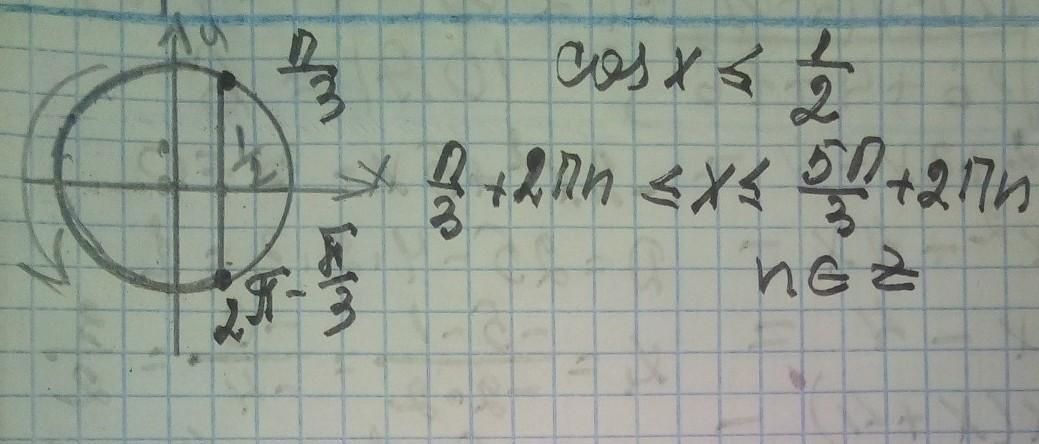 y
π/3
1/2
x
2π - π/3
cos x ≤ 1/2
π/3 + 2πn ≤ x ≤ 5π/3 + 2πn
n ∈ Z